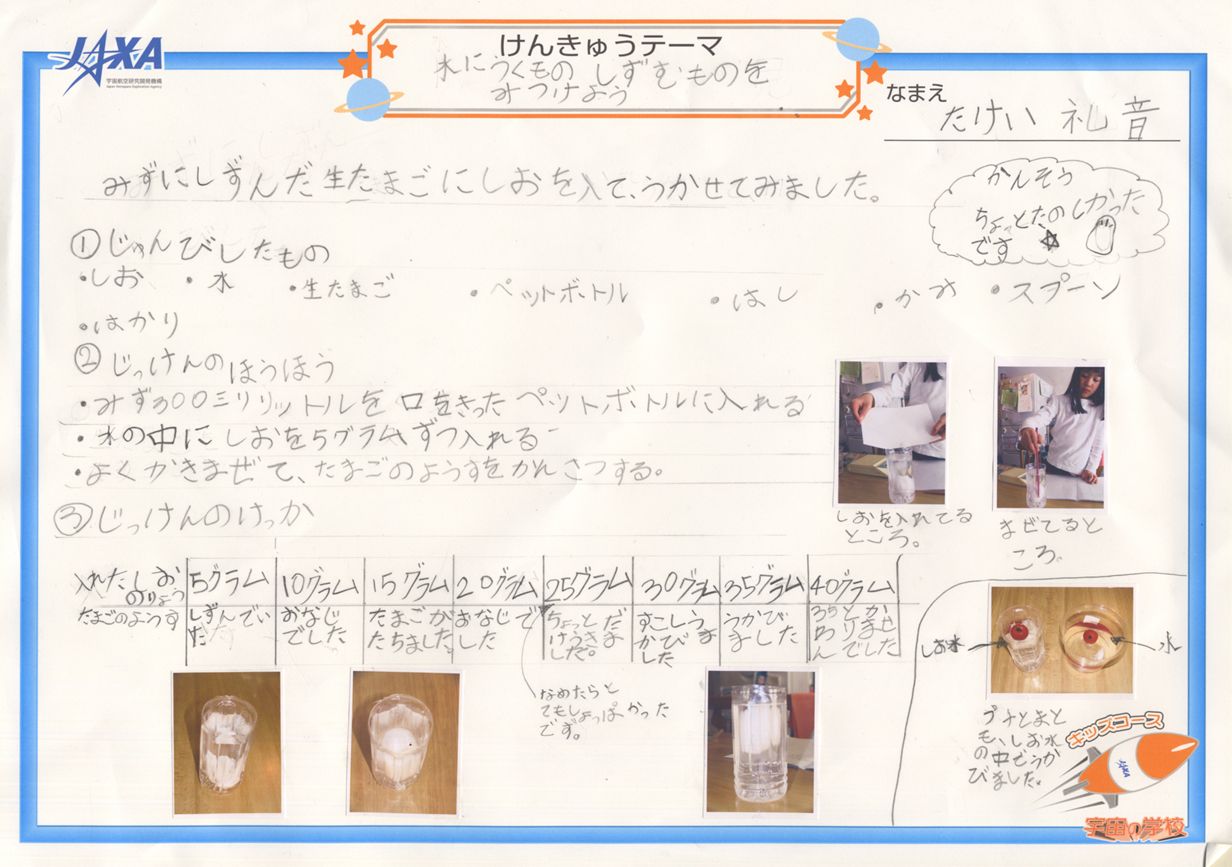 JAXA
宇宙航空研究開発機構
Japan Aerospace Exploration Agency
けんきゅうテーマ
水にうくもの しずむものを
みつけよう
なまえ
たけい 礼音
みずにしずんだ生たまごにしおを入て、うかせてみました。
かんそう
ちょっとたのしかった
です
①じゅんびしたもの
・しお ・水 ・生たまご ・ペットボトル ・はし ・かみ ・スプーン
・はかり
②じっけんのほうほう
・みず300ミリリットルを口をきったペットボトルに入れる
・水の中にしおを5グラムずつ入れる
・よくかきまぜて、たまごのようすをかんさつする。
しおを入れてる
ところ。
まぜてると
ころ。
③じっけんのけっか
入れたしお
のりょう
5グラム 10グラム 15グラム 20グラム 25グラム 30グラム 35グラム 40グラム
たまごのようす
しずんでい
た
おなじ
でした
たまごが
たちました。
おなじで
した
ちょっとだ
けうきま
した。
すこしう
かびま
した
うかび
ました
35とか
わりませ
んでした
なめたらと
てもしょっぱかった
です。
しお水
水
プチとまと
も、しお水
の中でうか
びました。
キッズコース
JAXA
宇宙の学校